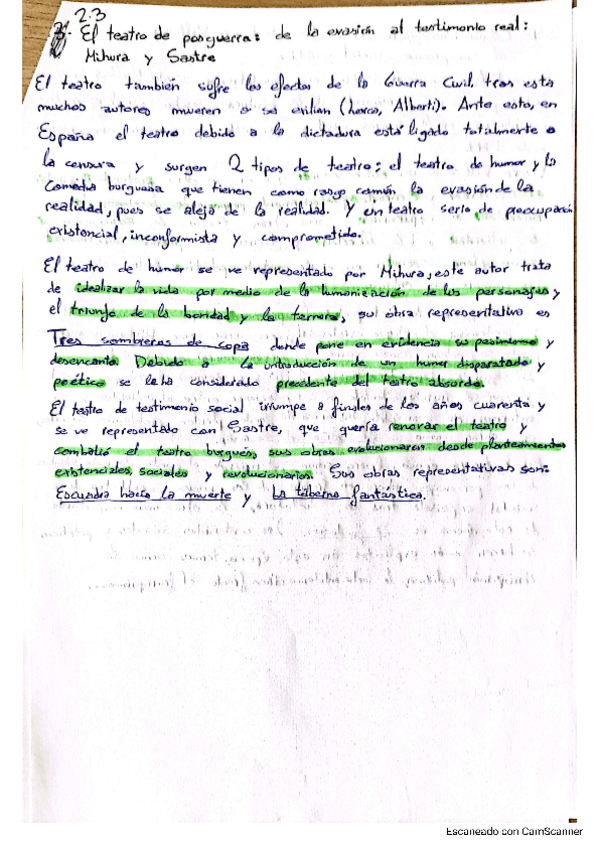 2.3
3. El teatro de posguerra: de la evasión al testimonio real:
Mihura y Sastre
El teatro también sufre los efectos de la Guerra Civil, tras esta
muchos autores mueren o se exilian (Lorca, Alberti). Ante esto, en
España el teatro debido a la dictadura está ligado totalmente a
la censura y surgen 2 tipos de teatro: el teatro de humor y la
comedia burguesa que tienen como rasgo común la evasión de la
realidad, pues se aleja de la realidad. Y un teatro serio, de preocupación
existencial, inconformista y comprometido.
El teatro de humor se ve representado por Mihura, este autor trata
de idealizar la vida por medio de la humanización de los personajes y
el triunfo de la bondad y la ternura, su obra representativa es
Tres sombreros de copa donde pone en evidencia su pesimismo y
desencanto. Debido a la introducción de un humor disparatado y
poético se le ha considerado precedente del teatro absurdo.
El teatro de testimonio social irrumpe a finales de los años cuarenta y
se ve representado con Sastre, que quería renovar el teatro y
combatió el teatro burgués, sus obras evolucionaron desde planteamientos
existenciales, sociales y revolucionarios. Sus obras representativas son:
Escuadra hacia la muerte y La taberna fantástica.
Escaneado con CamScanner